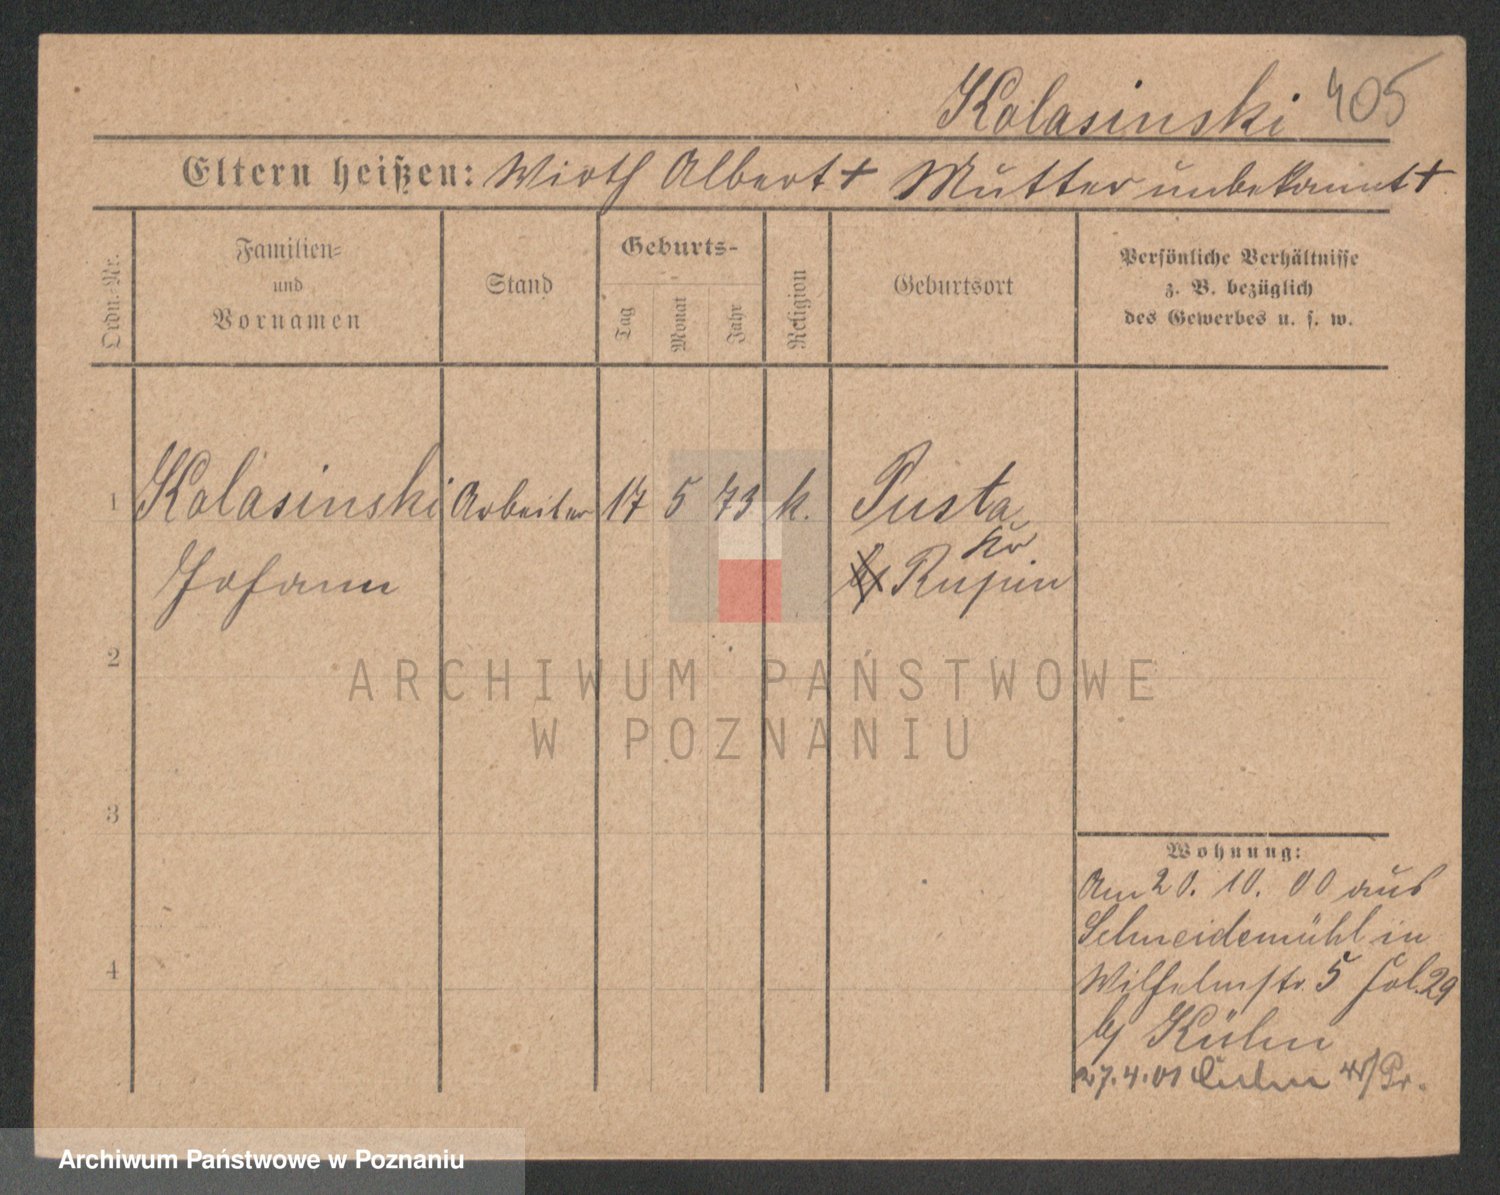 Kolasinski 405
Eltern heißen: Wirth Albert + Mutter unbekannt +
Ordn.-Nr.
Familien-
und
Vornamen
Stand
Geburts-
Tag
Monat
Jahr
Religion
Geburtsort
Persönliche Verhältnisse
z. B. bezüglich
des Gewerbes u. s. w.
1 Kolasinski Arbeiter 17 5 73 k. Pusta
Kr
Johann Rupin
2
ARCHIWUM PAŃSTWOWE
W POZNANIU
3
4
Wohnung:
Am 20. 10. 00 aus
Schneidemühl in
Wilhelmstr. 5 fol. 29
b/ Kühn
27.4.01
Archiwum Państwowe w Poznaniu